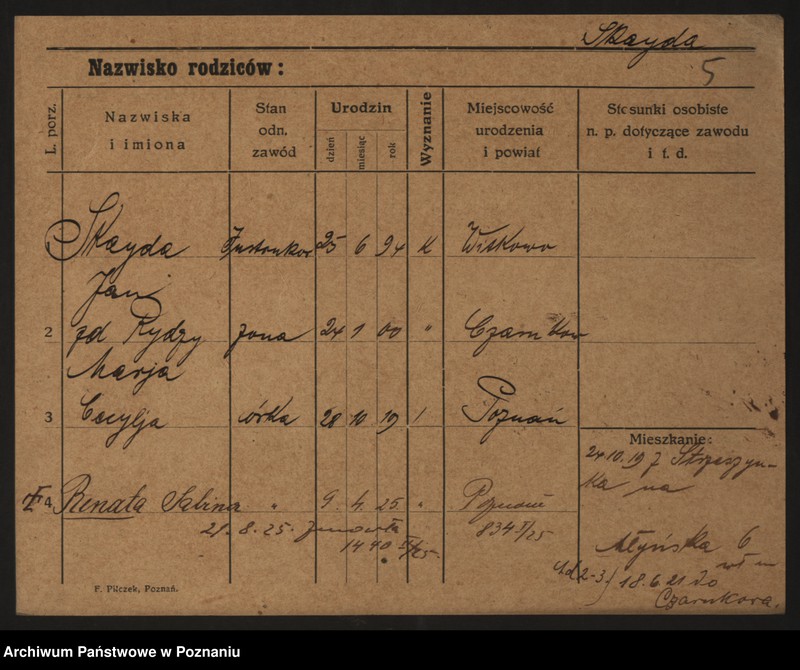 Skayda
5
Nazwisko rodziców:
L. porz.
Nazwiska i imiona
Stan odn. zawód
Urodzin
dzień
miesiąc
rok
Wyznanie
Miejscowość urodzenia i powiat
Stosunki osobiste n. p. dotyczące zawodu i t. d.
Skayda 25 6 94 K Witkowo
Jan
2 zd Rydzy żona 24 1 00 " Czarnkow
Marja
3 Cecylja córka 28 10 19 / Poznań
Mieszkanie:
24.10.19 z Strzeszyn-
ka na
4 Renata Sabina " 9. 4. 25. " Poznań
21. 8. 25. zmarła 834 /25
1440 /25.
Młyńska 6
2-3) 18.6.21 do
Czarnkowa.
F. Pilczek, Poznań.
Archiwum Państwowe w Poznaniu